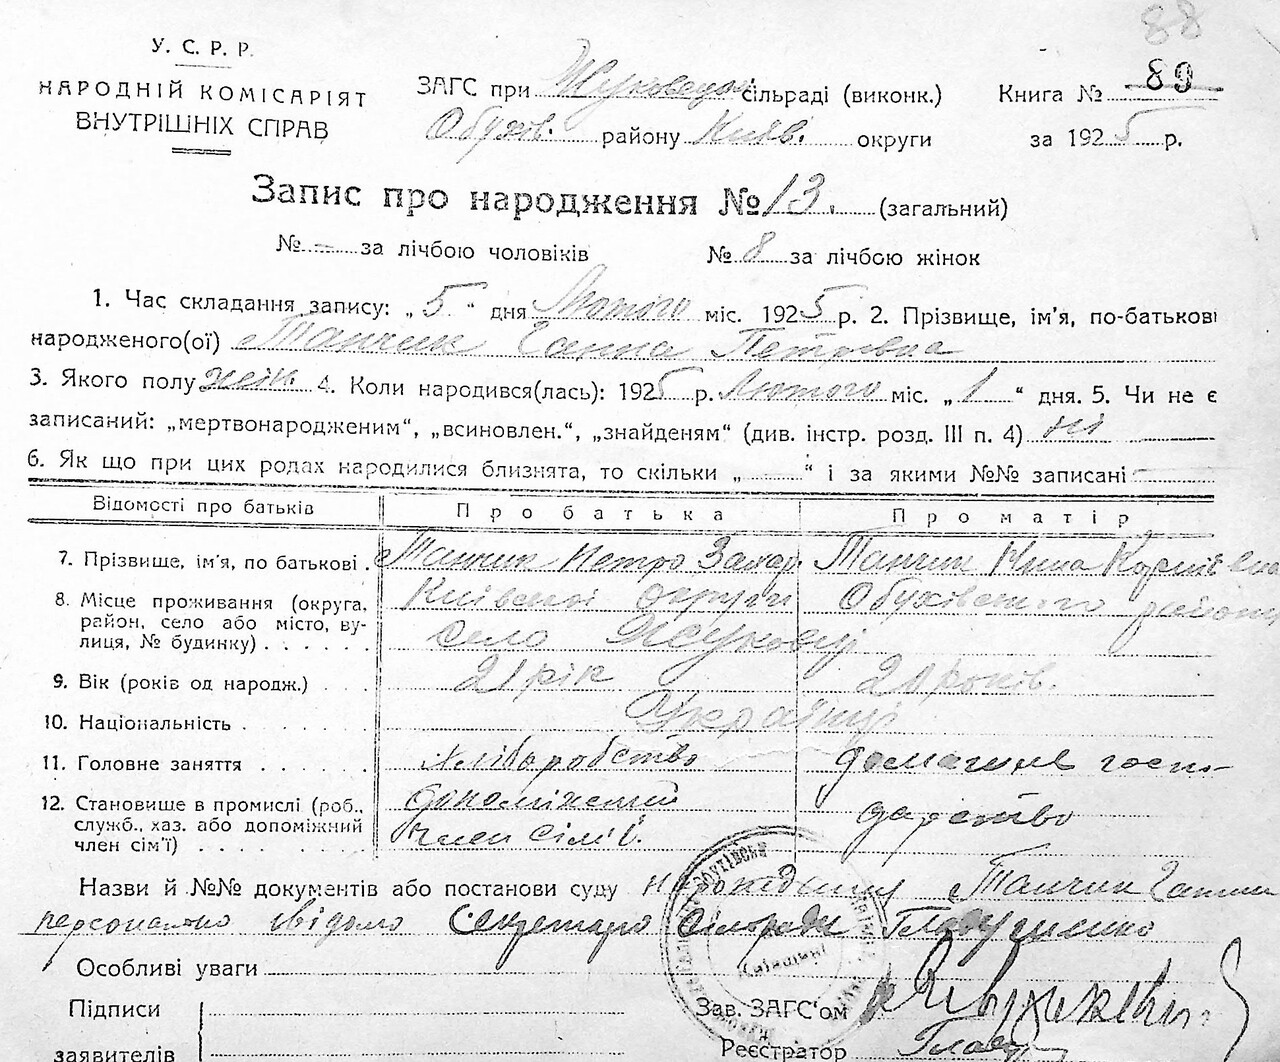 88
У. С. Р. Р.
НАРОДНІЙ КОМІСАРІЯТ
ВНУТРІШНІХ СПРАВ
ЗАГС при Жуковецькій сільраді (виконк.)
Книга № 89
Обухів. району Київ. округи
за 1925 р.
Запис про народження № 13. (загальний)
№ — за лічбою чоловіків № 8 за лічбою жінок
1. Час складання запису: „5“ дня Лютого міс. 1925 р. 2. Прізвище, ім'я, по-батькові
народженого(ої) Танчик Ганна Петровна
3. Якого полу жін. 4. Коли народився(лась): 1925 р. Лютого міс. „1“ дня. 5. Чи не є
записаний: „мертвонародженим“, „всиновлен.“, „знайденям“ (див. інстр. розд. III п. 4) ні
6. Як що при цих родах народилися близнята, то скільки „ “ і за якими №№ записані
Відомості про батьків Про батька Про матір
7. Прізвище, ім'я, по батькові Танчик Петро Захар. Танчик
8. Місце проживання (округа, район, село або місто, вулиця, № будинку) Київської округи Обухівського району
село Жуковці
9. Вік (років од народж.) 21 рік 20 років.
10. Національність Українці
11. Головне заняття хліборобство домашнє госпо-
12. Становище в промислі (роб., служб., хаз. або допоміжний член сім'ї) допоміжний дарство
член сім'ї.
Назви й №№ документів або постанови суду Танчик Ганни
персонально відомо Секретарю Сільради
Особливі уваги
Підписи
заявителів
Зав. ЗАГС'ом
Реєстратор